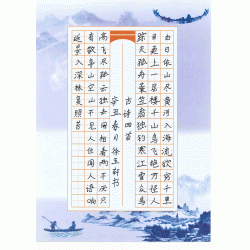 白日依山尽黄河入海流欲穷千里
目更上一层楼千山鸟飞绝万径人
踪灭孤舟蓑笠翁独钓寒江雪众鸟
古诗四首
辛丑春月徐玉轩书
高飞尽孤云独去闲相看两不厌只
有敬亭山空山不见人但闻人语响
返景入深林复照